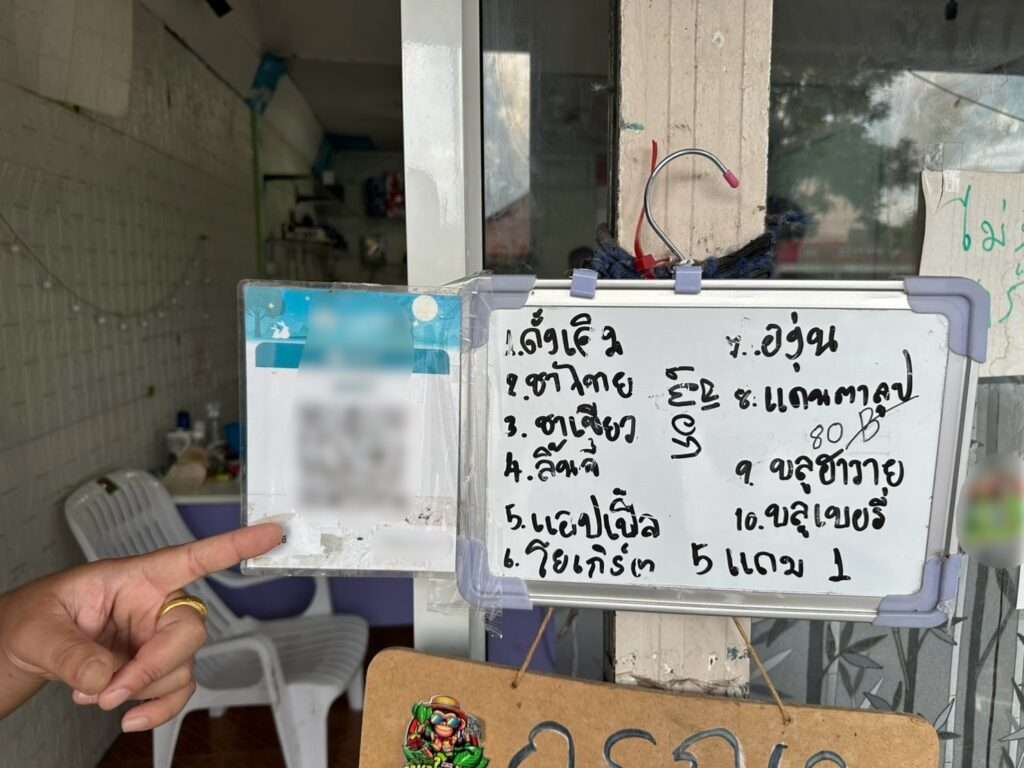 1. ดั้งเดิม
2. ชาไทย
3. ชาเขียว
4. ลิ้นจี่
5. แอปเปิ้ล
6. โยเกิร์ต
7. องุ่น
8. แคนตาลูป
80 B
9. บลูฮาวาย
10. บลูเบอรี่
5 แถม 1
ไม่